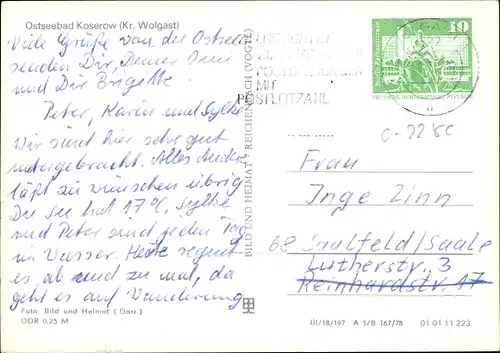 Ostseebad Koserow (Kr. Wolgast)
Viele Grüße von der Ostsee
senden Dir, Deiner Omi
und Dir Brigitte
Peter, Karin und Sylke
Wir sind hier sehr gut
untergebracht. Alles Andere
läßt zu wünschen übrig
Die See hat 17°C, Sylke
und Peter sind jeden Tag
im Wasser. Heute regnet
es ab und zu mal, da
geht es auf Wanderung
Foto: Bild und Heimat (Darr.)
DDR 0,25 M
BILD UND HEIMAT REICHENBACH (VOGTL)
POSTSENDUNGEN
MIT
POSTLEITZAHL
10
Frau
Inge Zinn
68 Saalfeld/Saale
Lutherstr. 3
Reinhardstr. 17
III/18/197 A 1/B 167/78 01 01 11 223